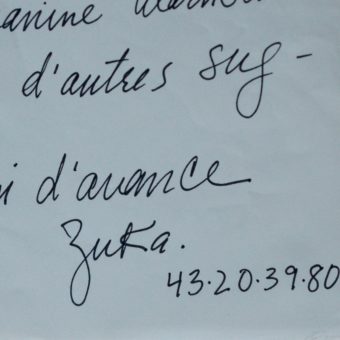 d'autres sug-
d'avance
Zuka.
43.20.39.80